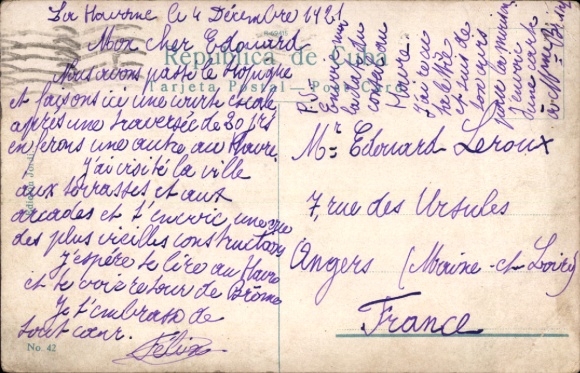 La Havane le 4 Décembre 1921
Mon cher Edouard
Nous avons passé le tropique
et faisons ici une courte escale
après une traversée de 20 jrs
en ferons une autre au Havre.
J'ai visité la ville
aux terrasses et aux
arcades et t'envoie une vue
des plus vieilles constructions
J'espère te lire au Havre
et te voir retour de Brême
Je t'embrasse de
tout cœur.
Félix
República de Cuba
Tarjeta Postal — Post Card
P.S.
J'ai reçu
et suis de
ton avis
pour la
J'envoie
une carte
à Mme
Mr. Edouard Leroux
7, rue des Ursules
Angers (Maine-et-Loire)
France
No. 42